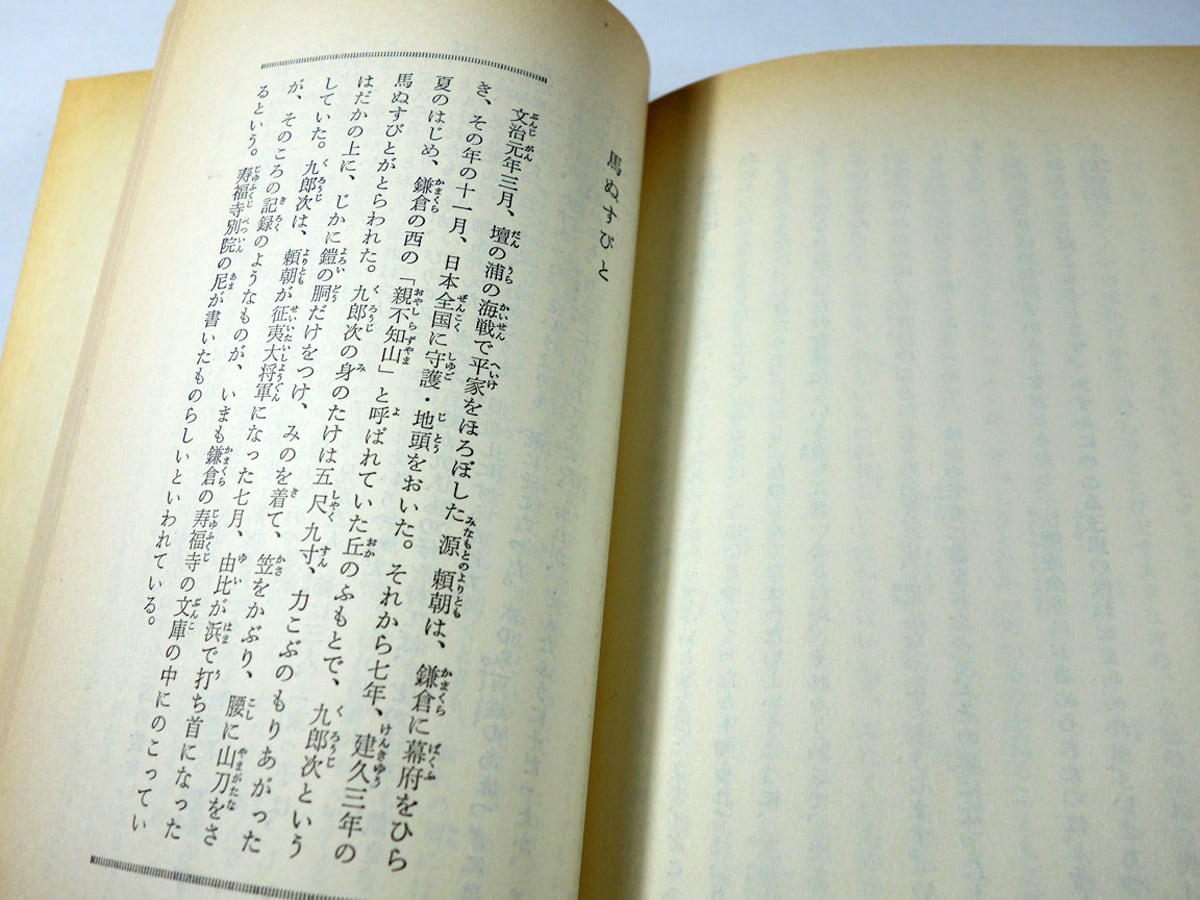 馬ぬすびと
文治元年三月、壇の浦の海戦で平家をほろぼした源頼朝は、鎌倉に幕府をひら
き、その年の十一月、日本全国に守護・地頭をおいた。それから七年、建久三年の
夏のはじめ、鎌倉の西の「親不知山」と呼ばれていた丘のふもとで、九郎次という
馬ぬすびとがとらわれた。九郎次の身のたけは五尺九寸、力こぶのもりあがった
はだかの上に、じかに鎧の胴だけをつけ、みのを着て、笠をかぶり、腰に山刀をさ
していた。九郎次は、頼朝が征夷大将軍になった七月、由比が浜で打ち首になった
が、そのころの記録のようなものが、いまも鎌倉の寿福寺の文庫の中にのこってい
るという。寿福寺別院の尼が書いたものらしいといわれている。